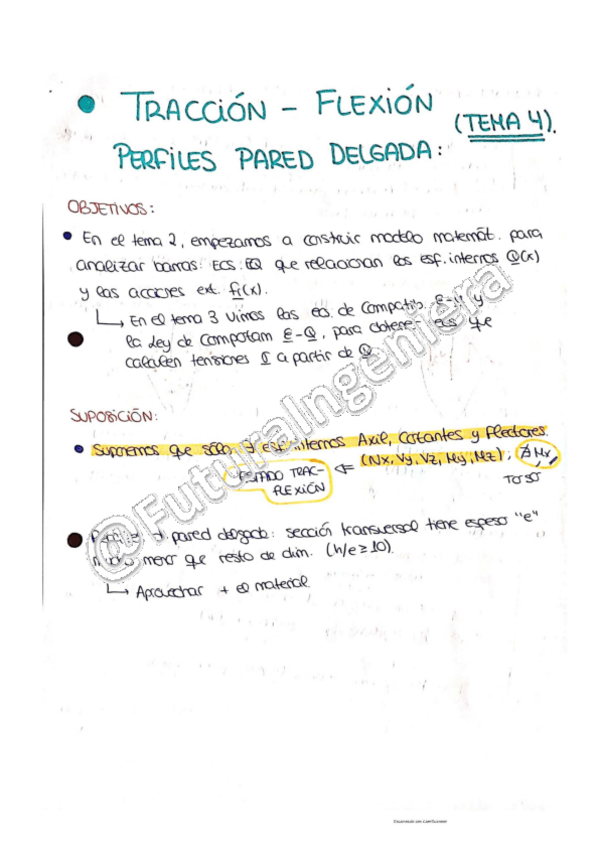 • TRACCIÓN - FLEXIÓN (TEMA 4).
PERFILES PARED DELGADA:
OBJETIVOS:
• En el tema 2, empezamos a construir modelo matemát. para
analizar barras: Ecs. EQ que relacionan los esf. internos Q(x)
y las acciones ext. fi(x).
↳ En el tema 3 vimos las ecs. de Compatib. E-U y
la Ley de Comportam E-Q, para obtener ecs que
calculen tensiones a partir de Q.
SUPOSICIÓN:
• Suponemos que sólo ∃ esf. internos Axil, Cortantes y Flectores
(Nx, Vy, Vz, My, Mz); ∄ Mx,
ESTADO TRAC-
FLEXIÓN
TORSOR
pared delgada: sección transversal tiene espesor "e"
mucho menor que resto de dim. (h/e ≥ 10).
↳ Aprovechar + el material.
@FuturaIngeniera
Escaneado con CamScanner